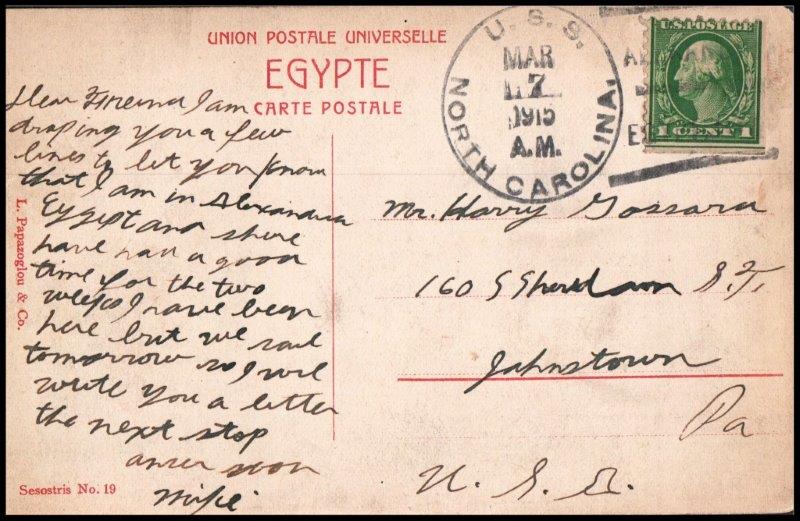 UNION POSTALE UNIVERSELLE
EGYPTE
CARTE POSTALE
U. S. S.
NORTH CAROLINA.
MAR
7
1915
A.M.
U.S. POSTAGE
1 CENT 1
Dear Friend I am
droping you a few
lines to let you know
that I am in Alexandria
Eygypt and shure
have had a good
time for the two
weeks I have been
here but we sail
tomorrow so I will
write you a letter
the next stop
anser soon
Mike
Mr. Harry
160 S Sheridan S.T.
Johnstown
Pa
U. S. A.
L. Papazoglou & Co.
Sesostris No. 19